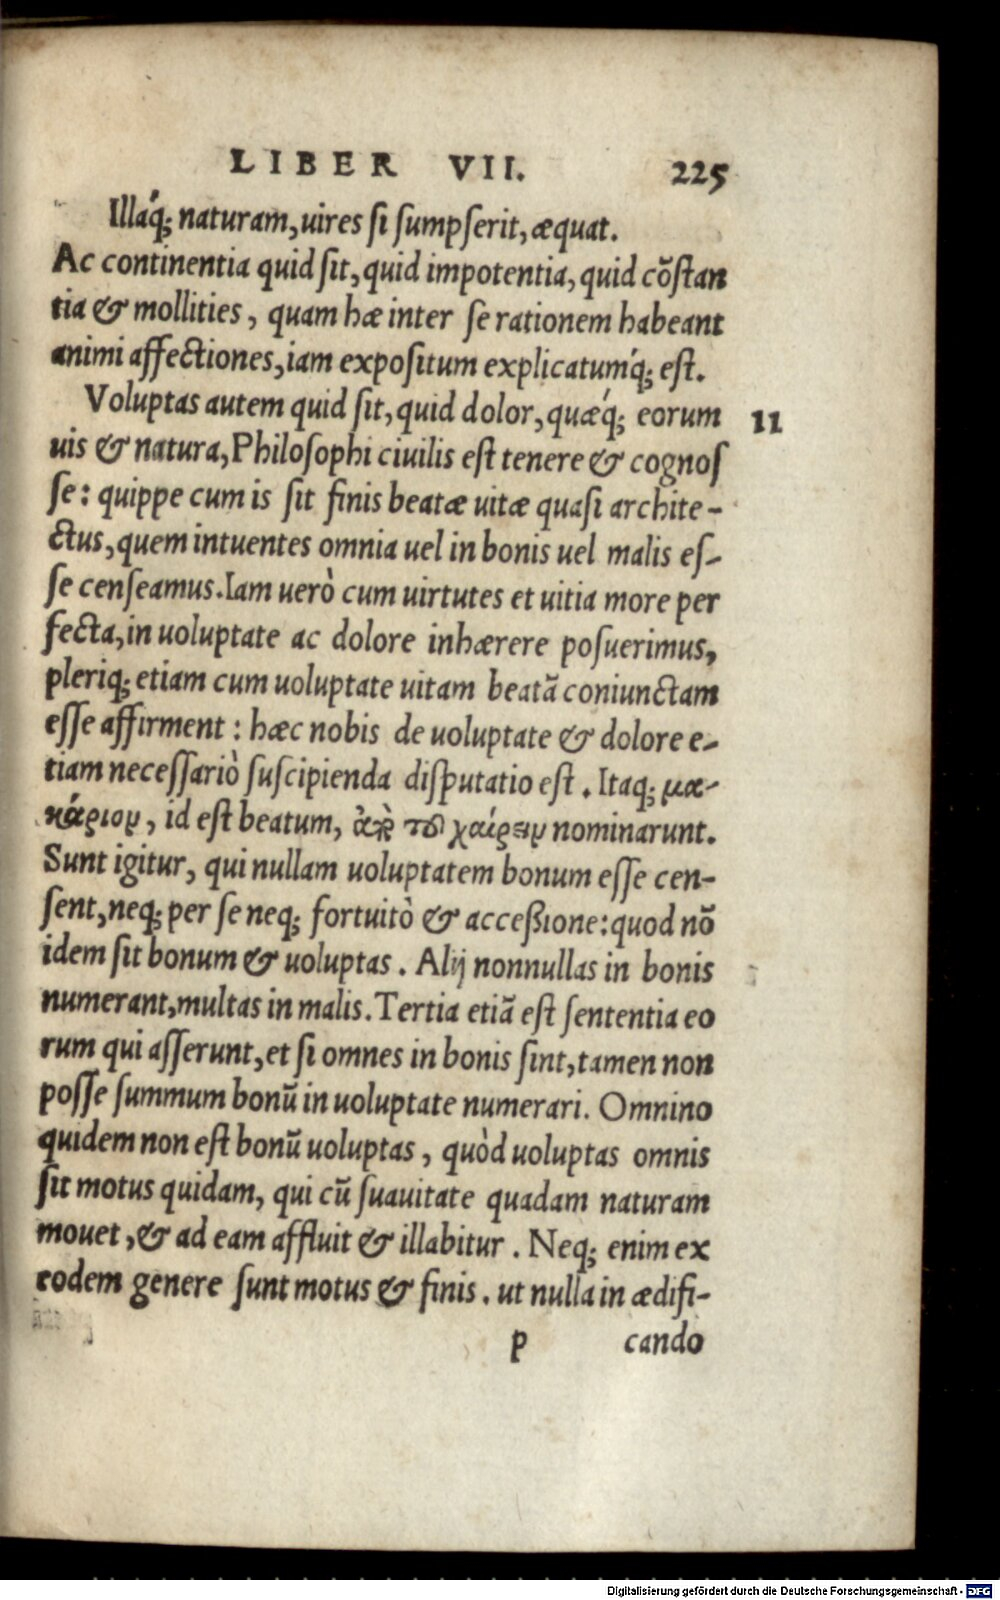 LIBER VII. 225
Illáq; naturam, uires si sumpserit, æquat.
Ac continentia quid sit, quid impotentia, quid cõstan
tia & mollities, quam hæ inter se rationem habeant
animi affectiones, iam expositum explicatumq́; est.
Voluptas autem quid sit, quid dolor, quæq́; eorum 11
uis & natura, Philosophi ciuilis est tenere & cognos
se: quippe cum is sit finis beatæ uitæ quasi archite-
ctus, quem intuentes omnia uel in bonis uel malis es-
se censeamus. Iam uerò cum uirtutes et uitia more per
fecta, in uoluptate ac dolore inhærere posuerimus,
pleriq; etiam cum uoluptate uitam beatã coniunctam
esse affirment: hæc nobis de uoluptate & dolore e-
tiam necessariò suscipienda disputatio est. Itaq; μα-
κάριον, id est beatum, ἀπὸ τοῦ χαίρειν nominarunt.
Sunt igitur, qui nullam uoluptatem bonum esse cen-
sent, neq; per se neq; fortuitò & acceßione: quod nõ
idem sit bonum & uoluptas. Alij nonnullas in bonis
numerant, multas in malis. Tertia etiã est sententia eo
rum qui asserunt, et si omnes in bonis sint, tamen non
posse summum bonũ in uoluptate numerari. Omnino
quidem non est bonũ uoluptas, quòd uoluptas omnis
sit motus quidam, qui cũ suauitate quadam naturam
mouet, & ad eam affluit & illabitur. Neq; enim ex
eodem genere sunt motus & finis. ut nulla in ædifi-
p cando
Digitalisierung gefördert durch die Deutsche Forschungsgemeinschaft - DFG